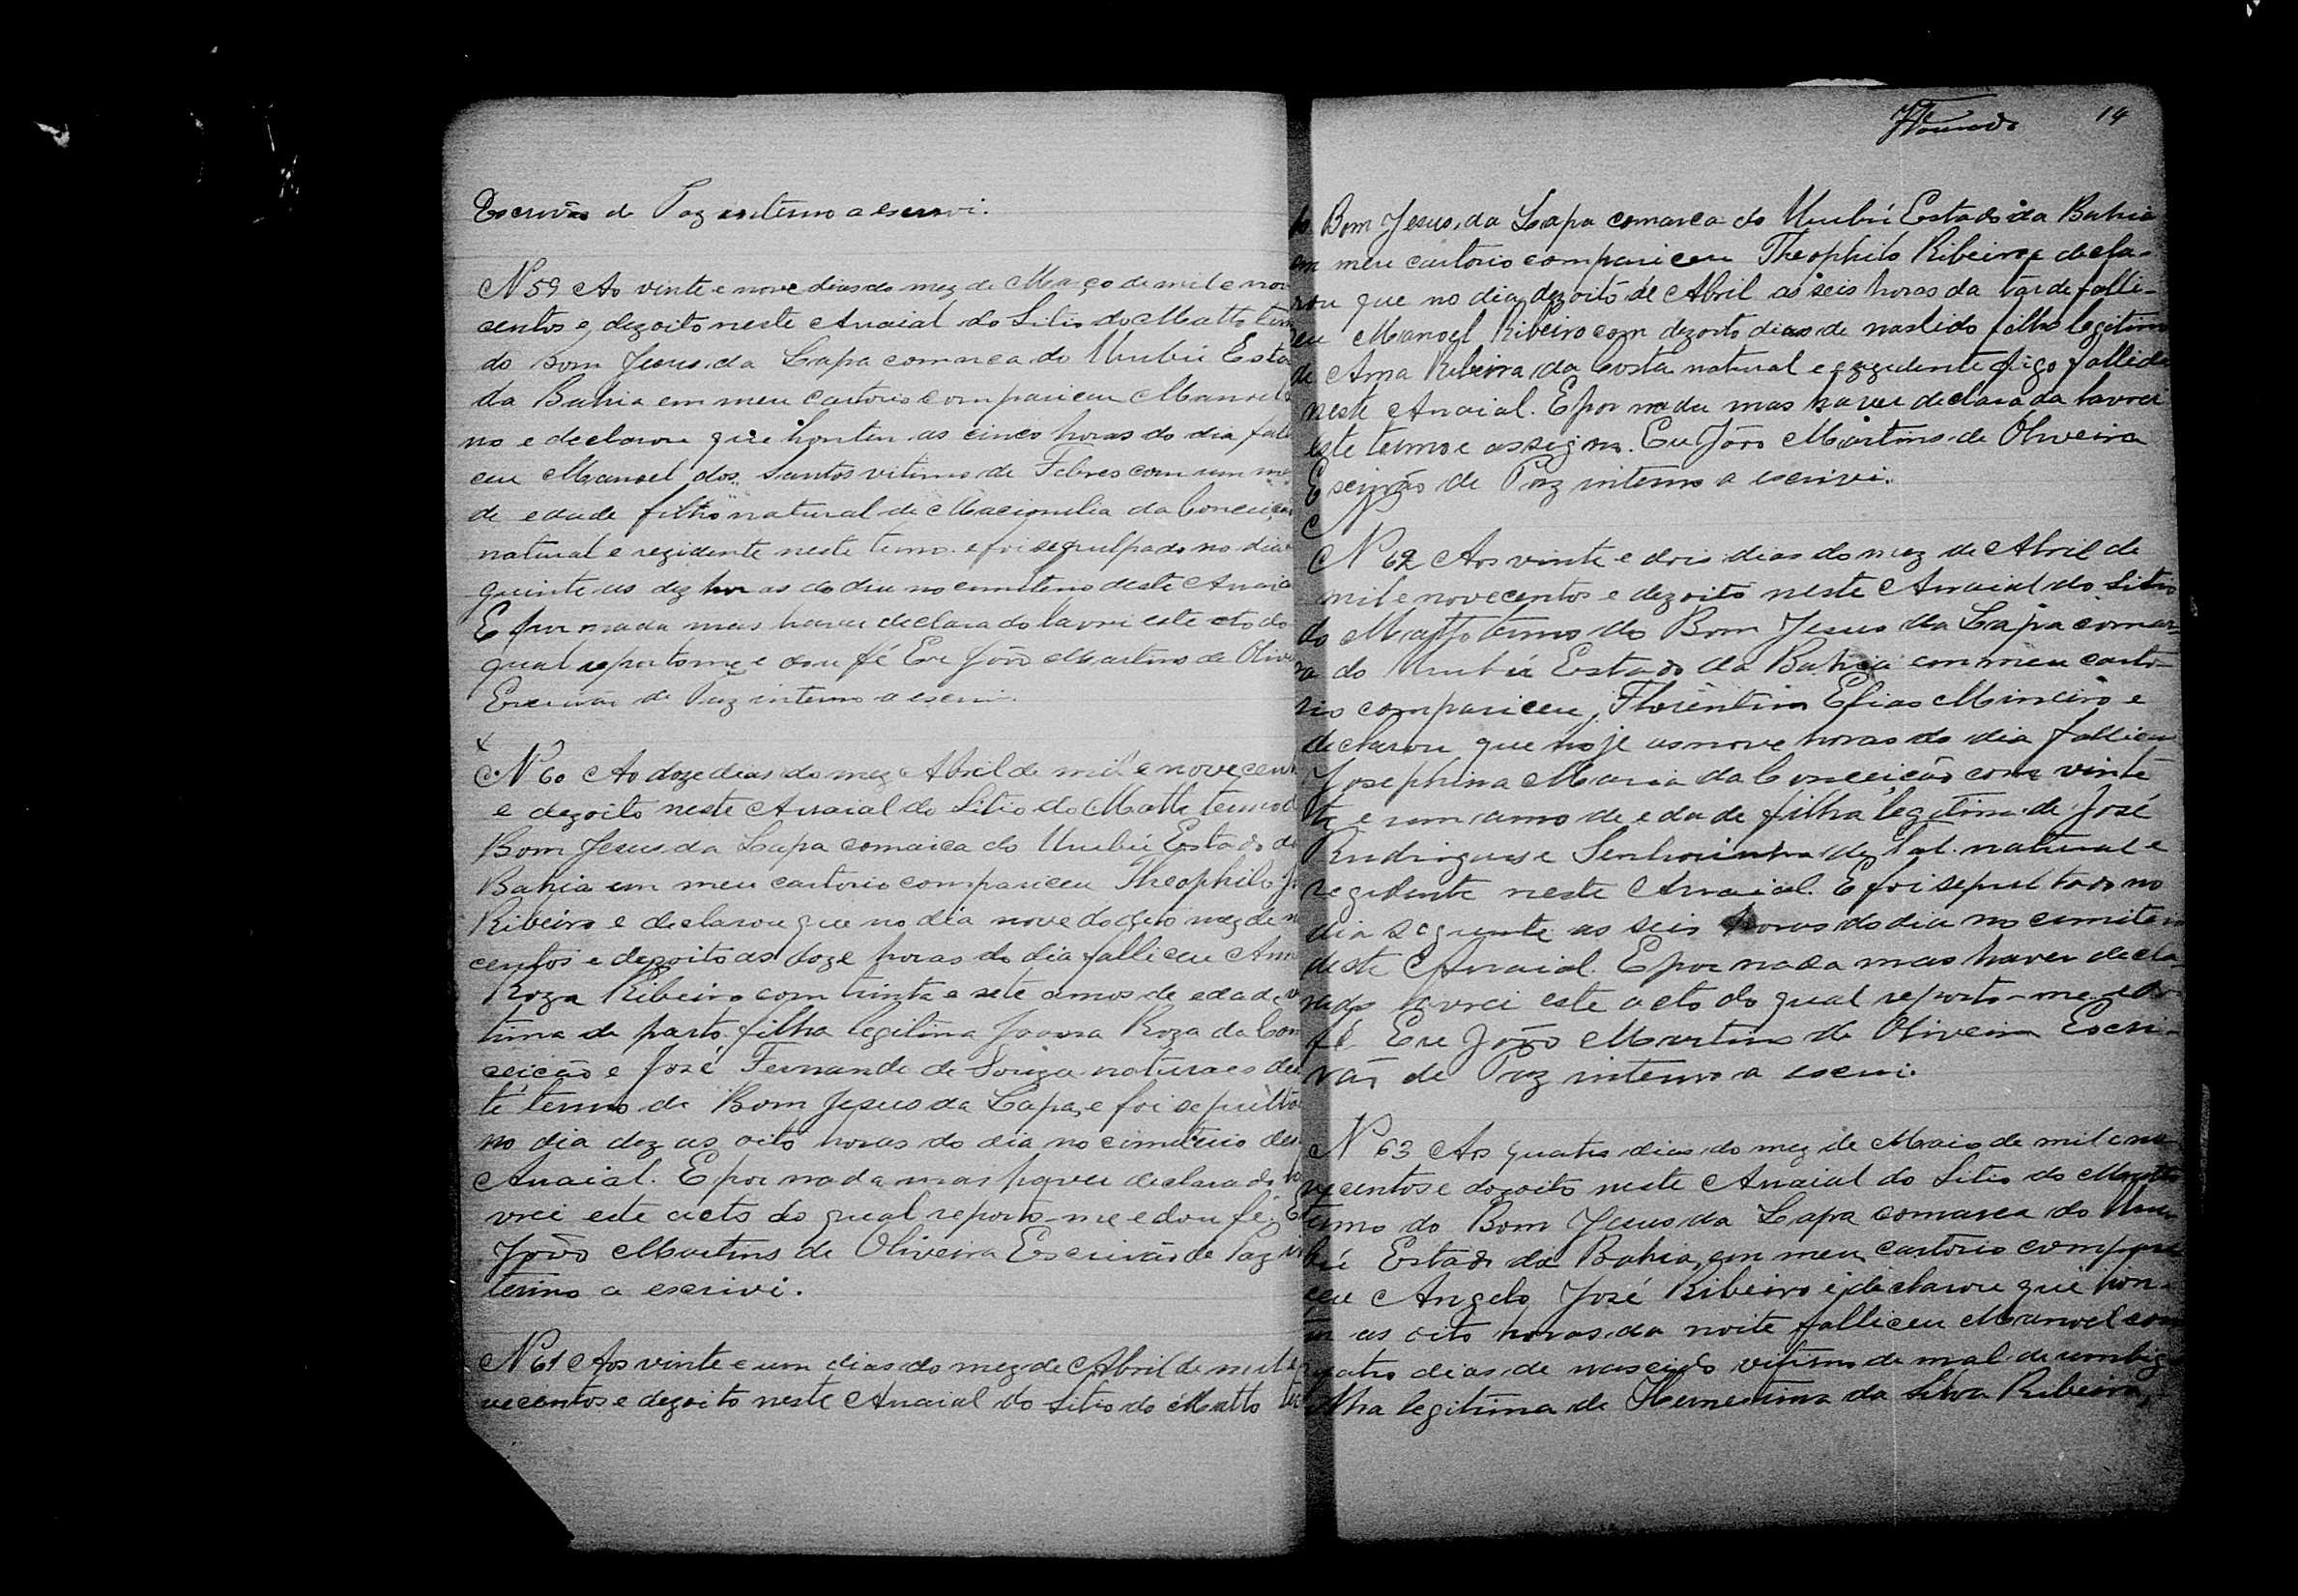 Escrivão de Paz interino a escrevi.
Nº 59 Ao vinte e nove dias do mez de Março de mil e nove
centos e dezoito neste Arraial do Sitio do Matto term
do Bom Jesus da Lapa comarca do Urubú Esta
da Bahia em meu cartorio compariceu Manoel
no e declarou que hontem as cinco horas do dia fali
ceu Manoel dos Santos vitimo de Febres com um me
de edade filho natural de da Conceiçã
natural e rezidente neste termo e foi sepulpado no dia
guinte as dez horas do dia no cimiterio deste Arraia
E por nada mas haver declarado lavrei este ato do
qual reporto me e dou fé Eu João Martins de Olive
Escrivão de Paz interino a escrvi
x
Nº 60 Ao doze dias do mez Abril de mil e novecen
e dezoito neste Arraial do Sitio do Matto termo d
Bom Jesus da Lapa comarca do Urubú Estado d
Bahia em meu cartorio compariceu Theophilo
Ribeiro e declarou que no dia nove do dito mez de
centos e dezoito as doze horas do dia falliceu Ann
Roza Ribeiro com trinta e sete annos de edade v
tima de parto filha legitima Joana Roza da Con
ceicão e José Fernande de Souza naturaes des
te termo de Bom Jesus da Lapa, e foi sepulta
no dia dez as oito horas do dia no cimiterio des
Arraial. E por nada mas haver declarado la
vrei este acto do qual reporto-me e dou fé. E
João Martins de Oliveira Escrivão de Paz in
terino a escrivi.
Nº 61 Aos vinte e um dias do mez de Abril de mil e
vecentos e dezoito neste Arraial do Sitio do Matto ter
14
Bom Jesus da Lapa comarca do Urubú Estado da Bahia
em meu cartorio compariceu Theophilo Ribeiro e decla-
rou que no dia dezoito de Abril as seis horas da tarde falli-
ceu Manoel Ribeiro com dezoito dias de nascido filho legitimo
de Anna Ribeira da Costa natural e rezidente digo fallido
neste Arraial. E por nada mas haver declarada lavrei
este termo e assigno. Eu João Martins de Oliveira
Escrivão de Paz interino a escrivi.
Nº 62 Aos vinte e dois dias do mez de Abril de
mil e novecentos e dezoito neste Arraial do Sitio
do Matto termo do Bom Jesus da Lapa comar-
ca do Urubú Estado da Bahia em meu carto-
rio compariceu, Florentino Elias Mineiro e
declarou que hoje as nove horas do dia falliceu
Josephina Maria da Conceição com vinte
te e um anno de edade filha legitima de José
Rudrigues e Senhorinha de tal natural e
rezidente neste Arraial. E foi sepultado no
dia seguente as seis horas do dia no cimiterio
deste Arraial. E por nada mas haver decla-
rado lavrei este acto do qual reporto-me e dou
fé Eu João Martins de Oliveira Escri-
vão de Paz interino a escrvi.
Nº 63 Aos quatro dias do mez de Maio de mil e no
vecentos e dezoito neste Arraial do Sitio do Matto
termo do Bom Jesus da Lapa comarca do Uru
bú Estado da Bahia, em meu cartorio compare
ceu Angelo José Ribeiro e declarou que hon-
tem as oito horas da noite falliceu Manoel com
quatro dias de nascido vitimo de mal de umbig
filha legitima de da Silva Ribeiro,